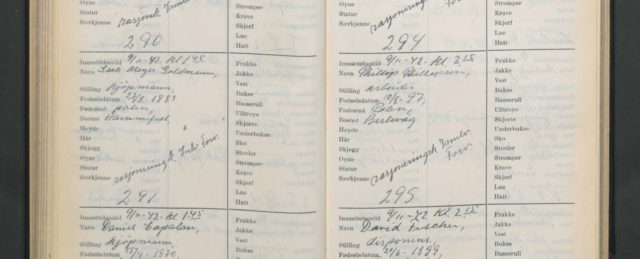 Øyne
Statur
Særkjenne
290
Strømper
Krave
Skjerf
Lue
Hatt
Innsettelsestid 9/11-42. Kl. 1.45
Navn Isak Meyer Goldmann,
Stilling Kjøpmann,
Fødselsdatum 1883
Fødested polen,
Bosted Hammerfest
Høyde
Hår
Skjegg
Øyne
Statur
Særkjenne
291
Frakke
Jakke
Vest
Bukse
Busserull
Ulltrøye
Skjorte
Underbukse
Sko
Støvler
Strømper
Krave
Skjerf
Lue
Hatt
Innsettelsestid 9/11-42. Kl. 1.45
Navn Daniel
Stilling Kjøpmann,
Fødselsdatum 1880,
Frakke
Jakke
Vest
Bukse
Busserull
Øyne
Statur
Særkjenne
294
Strømper
Krave
Skjerf
Lue
Hatt
Innsettelsestid 9/11-42. Kl. 2.15
Navn
Stilling arbeider
Fødselsdatum 97,
Fødested Polen,
Bosted Berlevåg
Høyde
Hår
Skjegg
Øyne
Statur
Særkjenne
295
Frakke
Jakke
Vest
Bukse
Busserull
Ulltrøye
Skjorte
Underbukse
Sko
Støvler
Strømper
Krave
Skjerf
Lue
Hatt
Innsettelsestid 9/11-42 Kl. 2.15
Navn David Fischer,
Stilling disponent,
Fødselsdatum 1899,
Frakke
Jakke
Vest
Bukse
Busserull